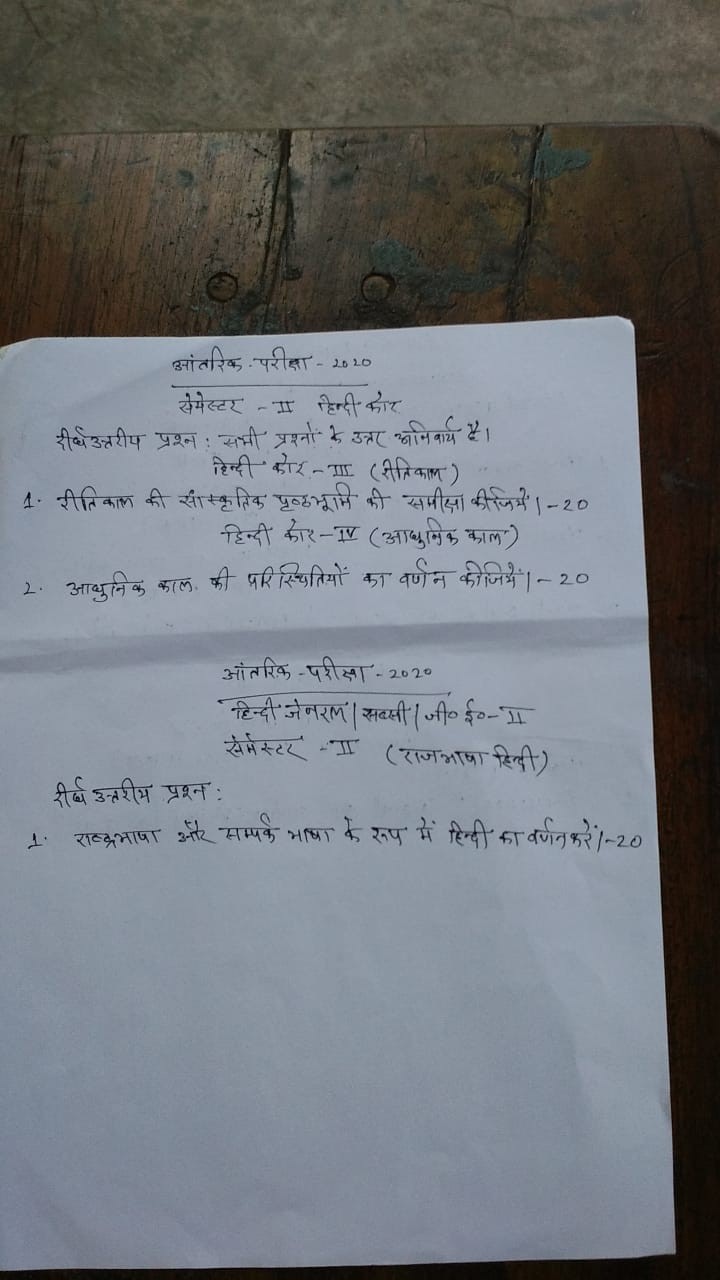 आंतरिक परीक्षा - 2020
सेमेस्टर - II हिन्दी कोर
दीर्घ उत्तरीय प्रश्न : सभी प्रश्नों के उत्तर अनिवार्य है।
हिन्दी कोर - III (रीतिकाल)
1. रीतिकाल की सांस्कृतिक पृष्ठभूमि की समीक्षा कीजिये। - 20
हिन्दी कोर - IV (आधुनिक काल)
2. आधुनिक काल की परिस्थितियों का वर्णन कीजिये। - 20
आंतरिक - परीक्षा - 2020
हिन्दी जेनरल / सब्सी / जी० ई० - II
सेमेस्टर - II (राजभाषा हिन्दी)
दीर्घ उत्तरीय प्रश्न :
1. राष्ट्रभाषा और सम्पर्क भाषा के रूप में हिन्दी का वर्णन करें। - 20